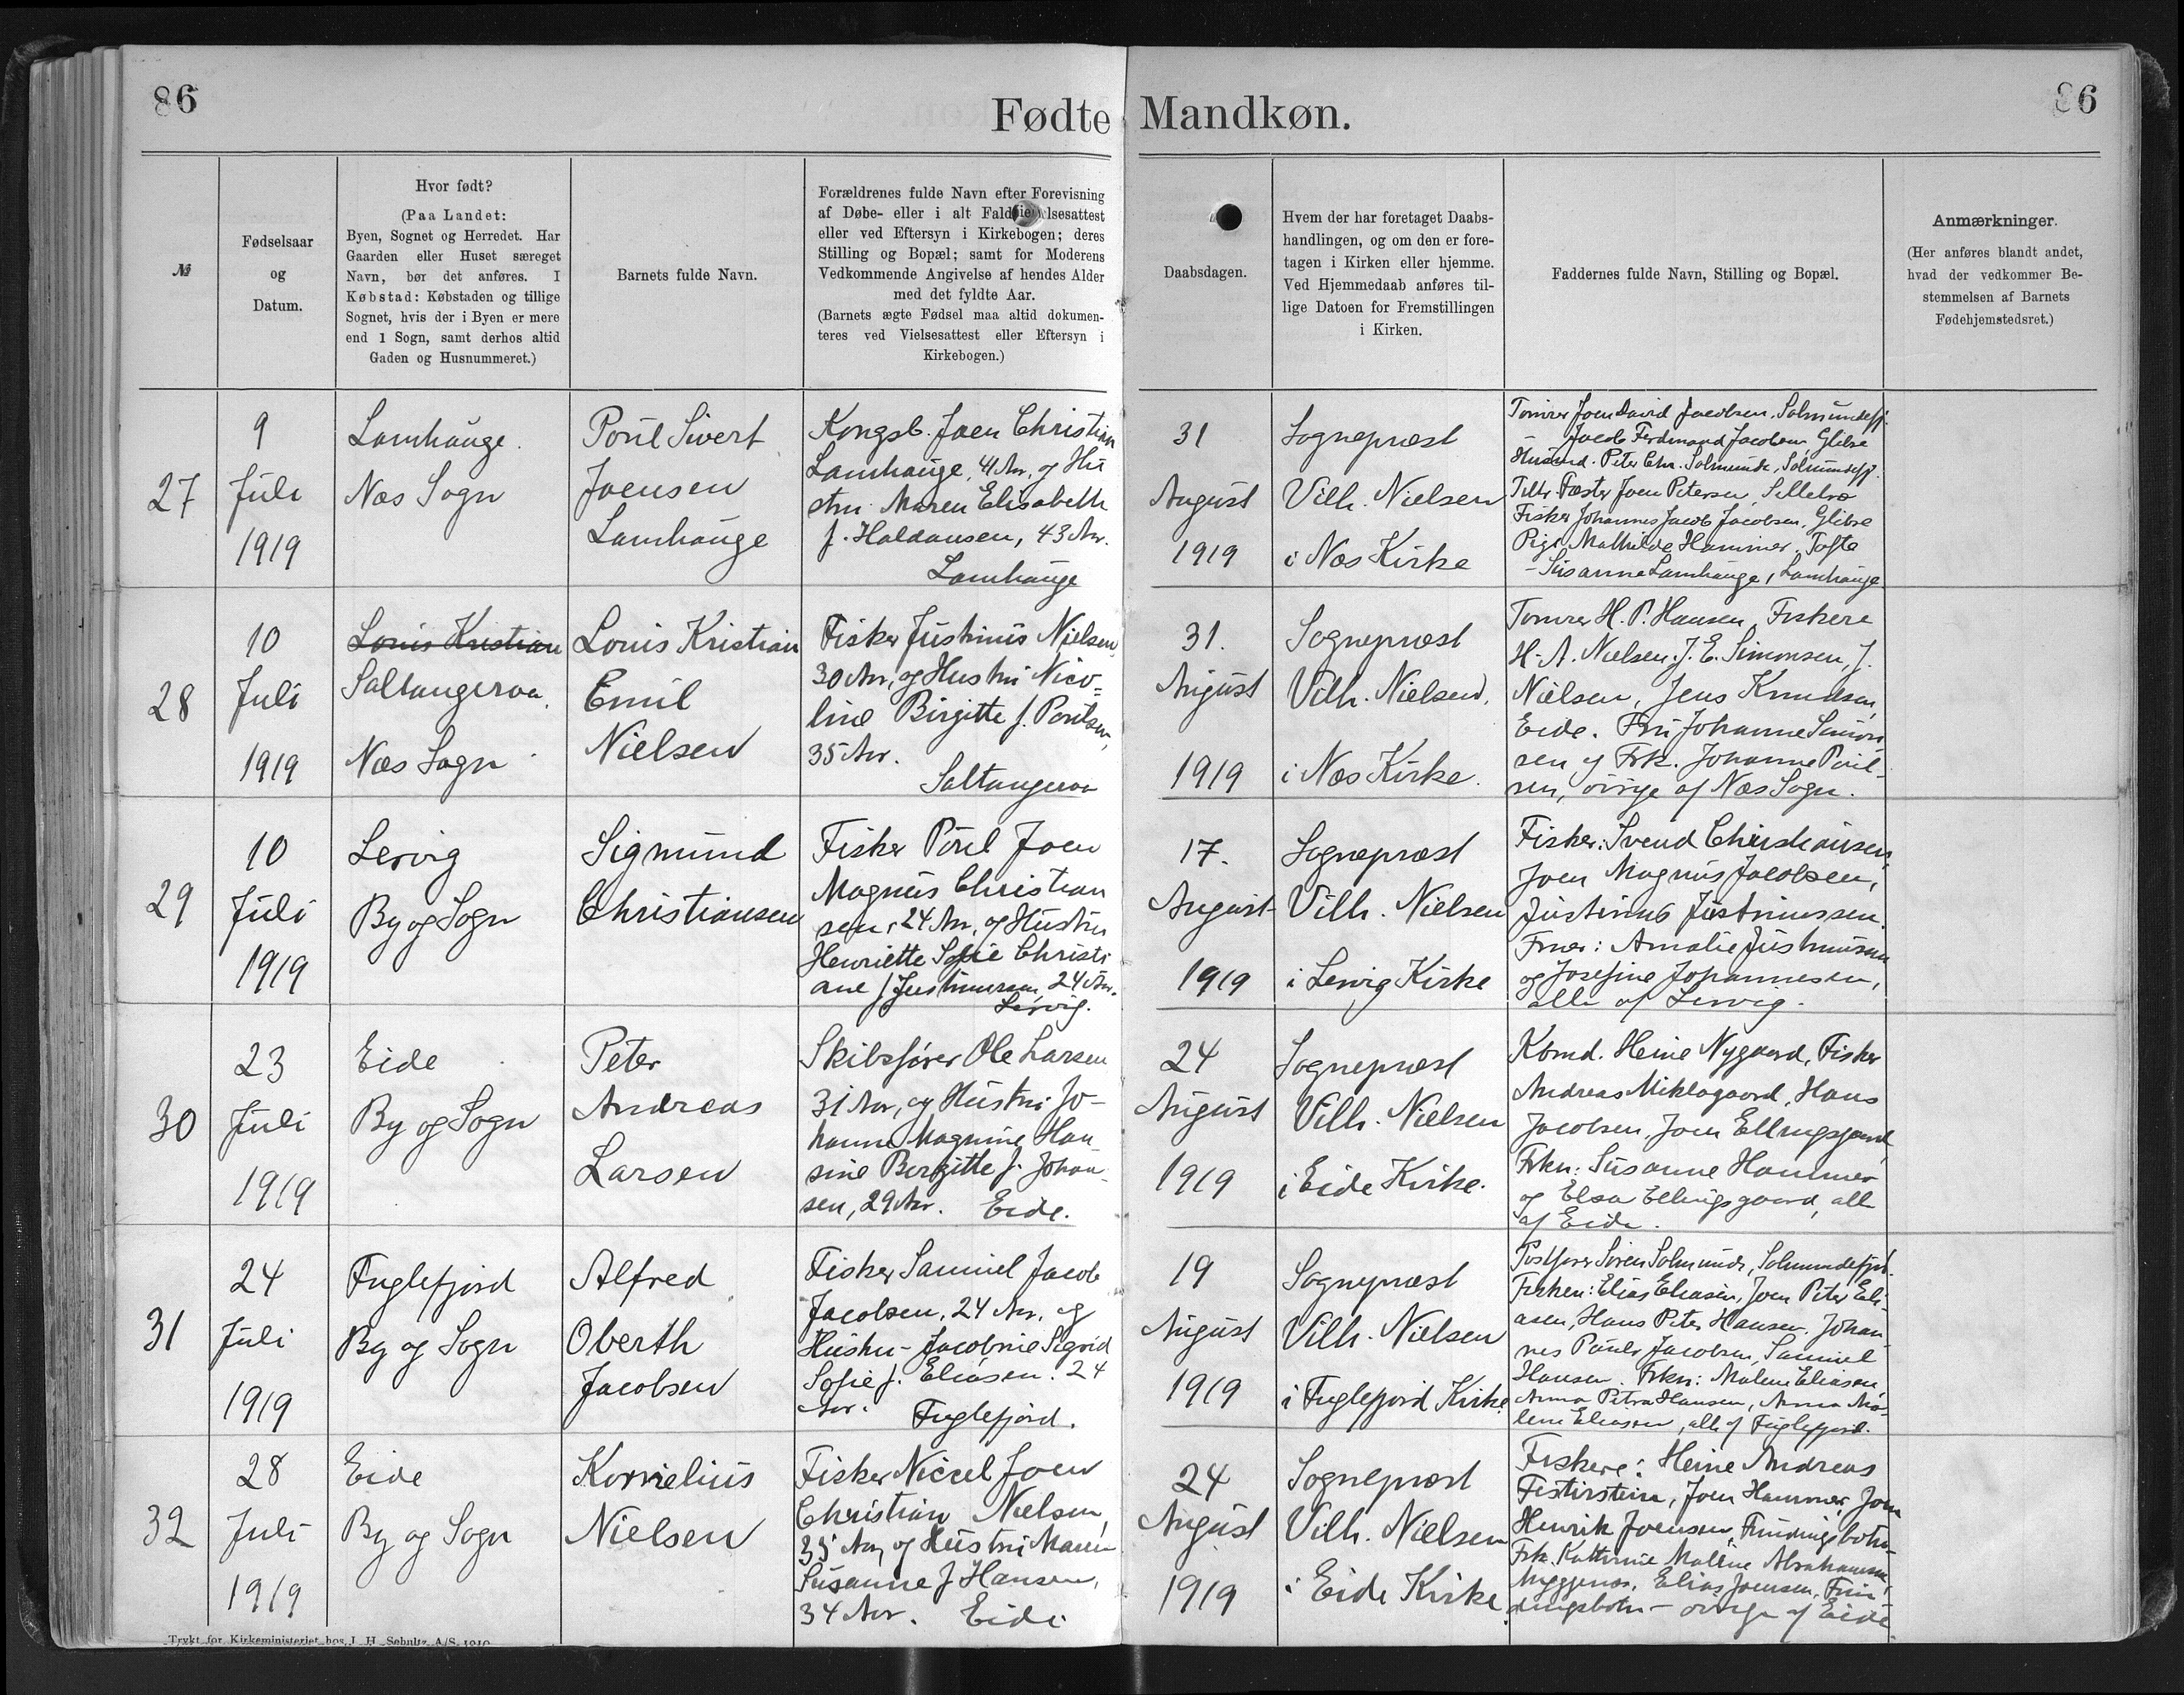 86
Fødte Mandkøn.
86
№
Fødselsaar
og
Datum.
Hvor født?
(Paa Landet:
Byen, Sognet og Herredet. Har
Gaarden eller Huset særeget
Navn, bør det anføres. I
Købstad: Købstaden og tillige
Sognet, hvis der i Byen er mere
end 1 Sogn, samt derhos altid
Gaden og Husnummeret.)
Barnets fulde Navn.
Forældrenes fulde Navn efter Forevisning
af Døbe- eller i alt Fald
lsesattest
eller ved Eftersyn i Kirkebogen; deres
Stilling og Bopæl; samt for Moderens
Vedkommende Angivelse af hendes Alder
med det fyldte Aar.
(Barnets ægte Fødsel maa altid dokumen-
teres ved Vielsesattest eller Eftersyn i
Kirkebogen.)
Daabsdagen.
Hvem der har foretaget Daabs-
handlingen, og om den er fore-
tagen i Kirken eller hjemme.
Ved Hjemmedaab anføres til-
lige Datoen for Fremstillingen
i Kirken.
Faddernes fulde Navn, Stilling og Bopæl.
Anmærkninger.
(Her anføres blandt andet,
hvad der vedkommer Be-
stemmelsen af Barnets
Fødehjemstedsret.)
27
9
Juli
1919
Lamhauge.
Næs Sogn
Poul Sivert
Joensen
Lamhauge
Kongsb. Joen Christian
Lamhauge, 41 Aar, og Hu
stru Maren Elisabeth
f. Haldansen, 43 Aar.
Lamhauge
31
August
1919
Sognepræst
Vilh. Nielsen
i Næs Kirke
Tømrer Joen David Jacobsen, Solmundefj.
Jacob Ferdinand Jacobsen, Glibre
Husmd. Peter Chr. Solmunde, Solmundefj.
Fæster Joen Petersen, Selletræ
Fisker Johannes Jacob Jacobsen, Glibre
Pige Mathilde Hammer, Tofte
- Susanne Lamhauge, Lamhauge
28
10
Juli
1919
Louis Kristian
Saltangeraa
Næs Sogn
Louis Kristian
Emil
Nielsen
Fisker Justinus Nielsen,
30 Aar, og Hustru Nico-
line Birgitte f. Poulsen,
35 Aar.
Saltangeraa
31.
August
1919
Sognepræst
Vilh. Nielsen.
i Næs Kirke.
Tømrer H. P. Hansen, Fiskere
H. A. Nielsen. J. E. Simonsen, J.
Nielsen, Jens Knudsen,
Eide. Fru Johanne Simon
sen og Frk. Johanne Poul-
sen, øvrige af Næs Sogn.
29
10
Juli
1919
Lervig
By og Sogn
Sigmund
Christiansen
Fisker Poul Joen
Magnus Christian
sen, 24 Aar, og Hustru
Henriette Sofie Christi
ane f. Justinussen, 24 Aar.
Lervig.
17.
August
1919
Sognepræst
Vilh. Nielsen
i Lervig Kirke
Fisker: Svend Christiansen,
Joen Magnus Jacobsen,
Justinus Justinussen.
Fruer: Amalie Justinussen
og Josefine Johannesen,
alle af Lervig.
30
23
Juli
1919
Eide
By og Sogn
Peter
Andreas
Larsen
Skibsfører Ole Larsen
31 Aar, og Hustru Jo-
hanne Magnine Han
sine Birgitte f. Johan-
sen, 29 Aar. Eide.
24
August
1919
Sognepræst
Vilh. Nielsen
i Eide Kirke.
Kbmd. Heine Nygaard, Fisker
Andreas Miklagaard, Hans
Jacobsen, Joen Ellingsgaard,
Frkn: Susanne Hammer
og Elsa Ellingsgaard, alle
af Eide.
31
24
Juli
1919
Fuglefjord
By og Sogn
Alfred
Oberth
Jacobsen
Fisker Samuel Jacob
Jacobsen, 24 Aar, og
Hustru Jacobine Sigrid
Sofie f. Eliasen. 24
Aar. Fuglefjord.
19
August
1919
Sognepræst
Vilh. Nielsen
i Fuglefjord Kirke.
Postfører Søren Solmunde, Solmundefjord.
Fiskere: Elias Eliasen, Joen Peter Eli-
asen, Hans Peter Hansen, Johan-
nes Pauli Jacobsen, Samuel
Hansen. Frkn: Malene Eliasen,
Anna Petra Hansen, Anna Ma-
lene Eliasen, alle af Fuglefjord.
32
28
Juli
1919
Eide
By og Sogn
Kornelius
Nielsen
Fisker Niccel Joen
Christian Nielsen,
35 Aar, og Hustru Maren
Susanne f. Hansen,
34 Aar. Eide
24
August
1919
Sognepræst
Vilh. Nielsen
i Eide Kirke.
Fiskere: Heine Andreas
Festirstein, Joen Hammer, Joen
Henrik Joensen, Funningsbotn
Frk. Katherine Maline Abrahamsen,
Elias Joensen, Fun-
dingsbotn - øvrige af Eide
Trykt for Kirkeministeriet hos J. H. Schultz A/S 1919